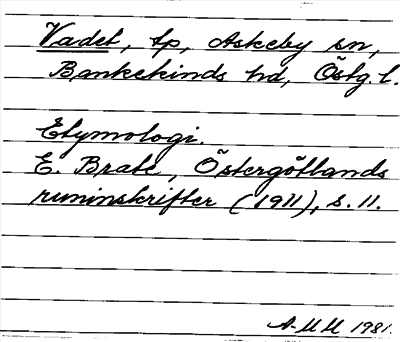 Vadet, tp, Askeby sn,
Bankekinds hd, Östg. l.
Etymologi.
E. Brate, Östergötlands
runinskrifter (1911), s. 11.
A-M M 1981.